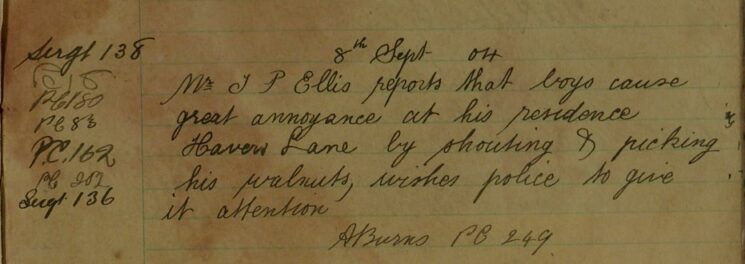 Sergt 138
PC 180
PC 83
P.C. 162
PC 202
Sergt 136
8th Sept 04
Mr J P Ellis reports that boys cause
great annoyance at his residence
Havers Lane by shouting & picking
his walnuts, wishes police to give
it attention
ABurns PC 249